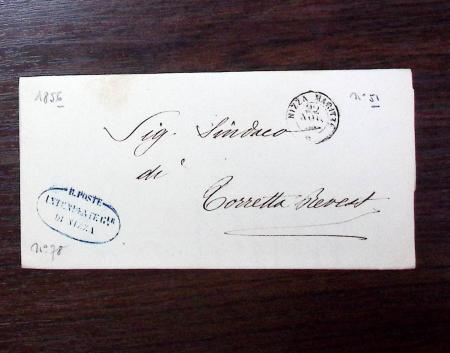 1856
NIZZA MARITT.
22
AGO.
N° 51
Sig. Sindaco
di
Torretta Revest
R. POSTE
INTENDENTE G.LE
DI NIZZA
N° 78